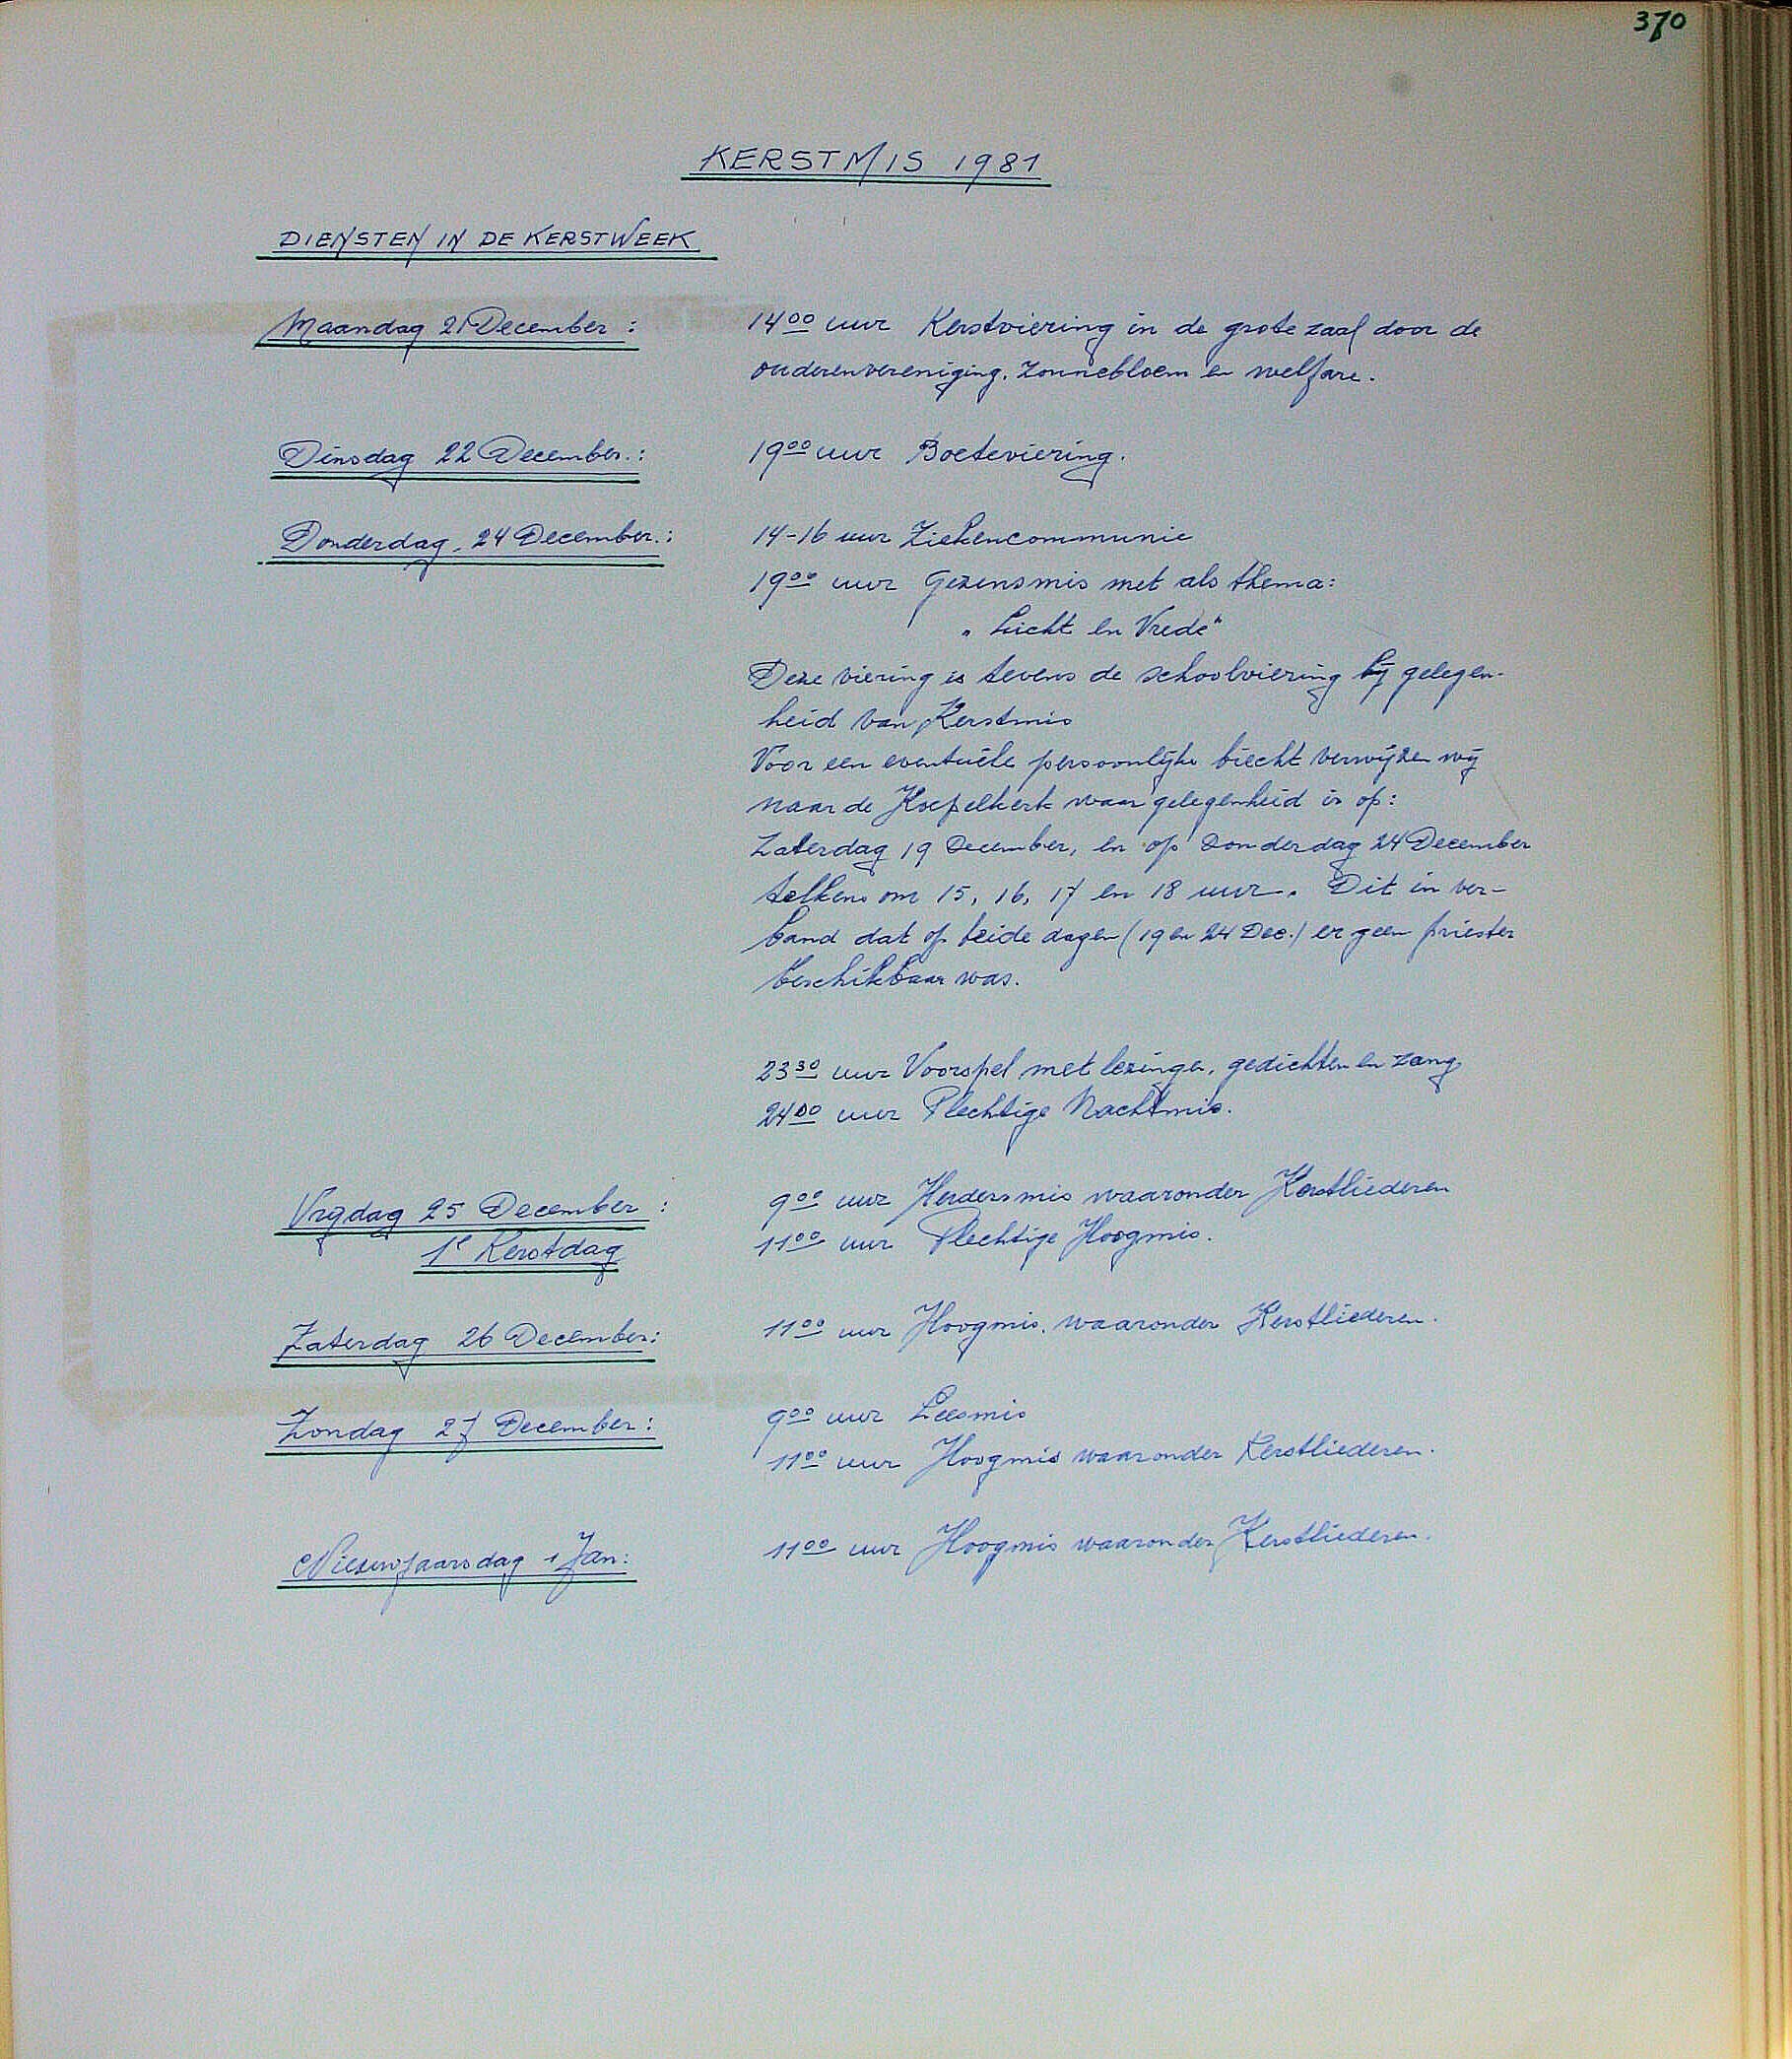 370
KERSTMIS 1981
DIENSTEN IN DE KERSTWEEK
Maandag 21 December : 14⁰⁰ uur Kerstviering in de grote zaal door de
ouderenvereniging, Zonnebloem en welfare.
Dinsdag 22 December.: 19⁰⁰ uur Boeteviering.
Donderdag, 24 December.: 14-16 uur Ziekencommunie
19⁰⁰ uur Gezinsmis met als thema:
„Licht en Vrede"
Deze viering is tevens de schoolviering bij gelegen-
heid van Kerstmis
Voor een eventuële persoonlijke biecht verwijzen wij
naar de Koepelkerk waar gelegenheid is op:
Zaterdag 19 December, en op Donderdag 24 December
telkens om 15, 16, 17 en 18 uur. Dit in ver-
band dat op beide dagen (19 en 24 Dec.) er geen priester
beschikbaar was.
23³⁰ uur Voorspel met lezingen, gedichten en zang
24⁰⁰ uur Plechtige Nachtmis.
Vrijdag 25 December : 9⁰⁰ uur Herdersmis waaronder Kerstliederen
1ᵉ Kerstdag 11⁰⁰ uur Plechtige Hoogmis.
Zaterdag 26 December: 11⁰⁰ uur Hoogmis, waaronder Kerstliederen.
Zondag 27 December: 9⁰⁰ uur Leesmis
11⁰⁰ uur Hoogmis waaronder Kerstliederen.
Nieuwjaarsdag 1 Jan: 11⁰⁰ uur Hoogmis waaronder Kerstliederen.